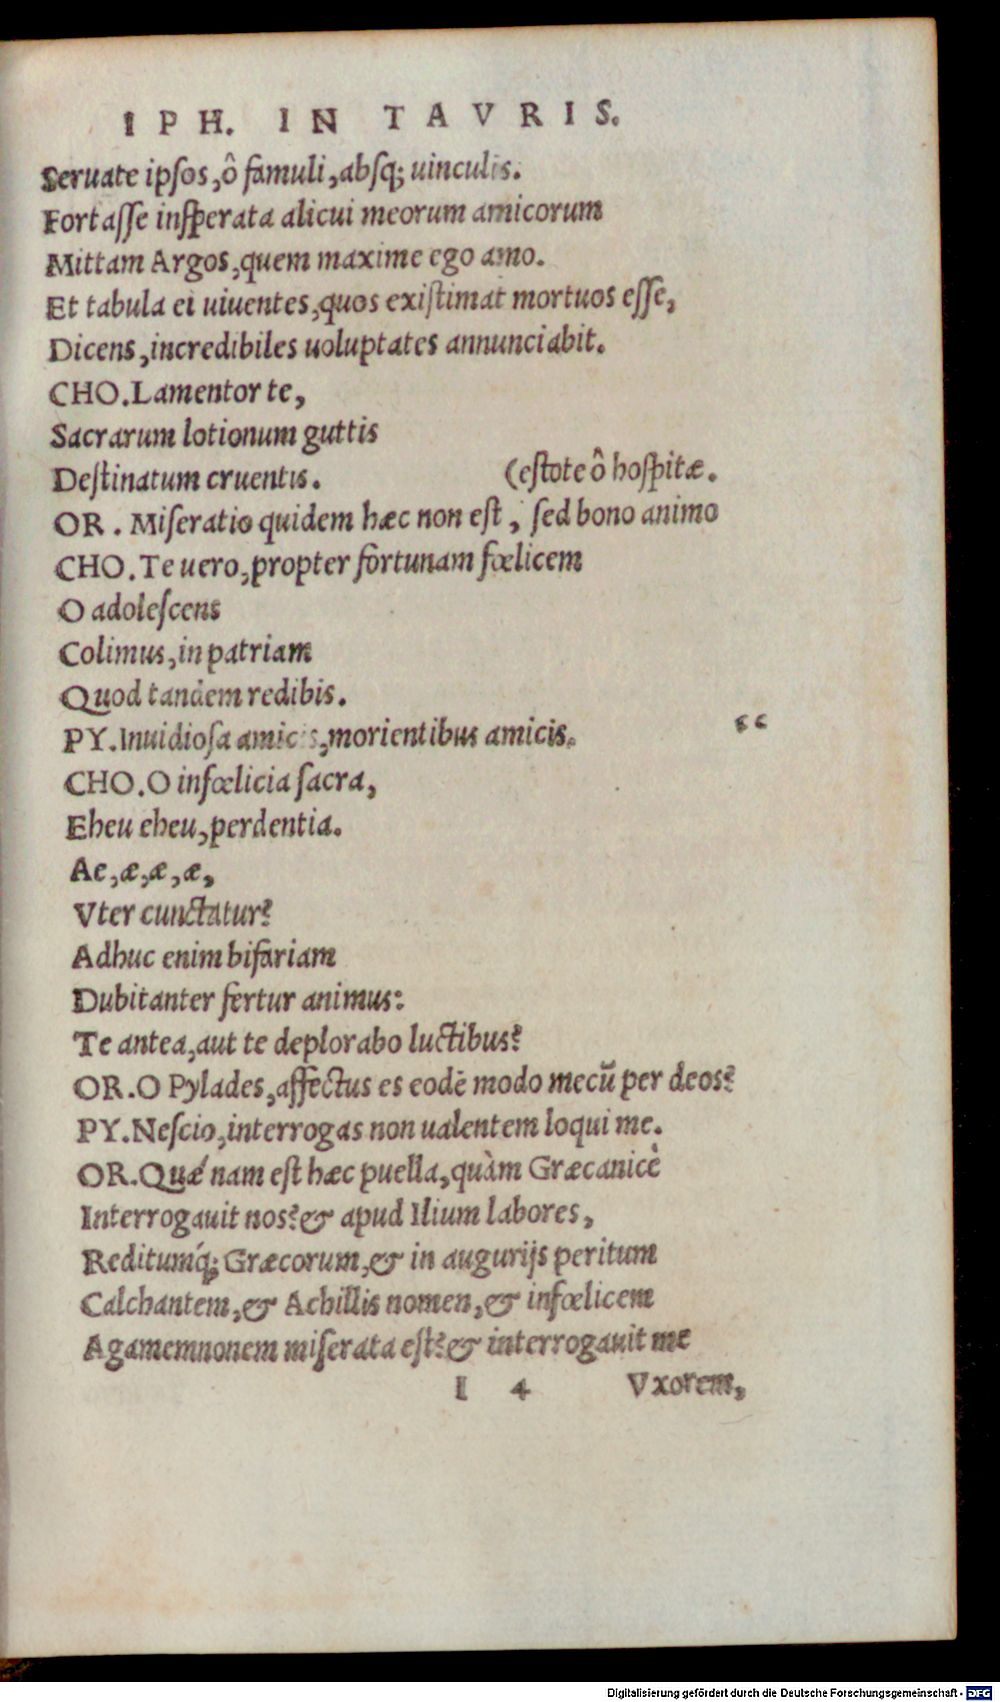 IPH. IN TAVRIS.
Seruate ipsos, ô famuli, absq; uinculis.
Fortasse insperata alicui meorum amicorum
Mittam Argos, quem maxime ego amo.
Et tabula ei uiuentes, quos existimat mortuos esse,
Dicens, incredibiles uoluptates annunciabit.
CHO. Lamentor te,
Sacrarum lotionum guttis
Destinatum cruentis. (estote ô hospitæ.
OR. Miseratio quidem hæc non est, sed bono animo
CHO. Te uero, propter fortunam fœlicem
O adolescens
Colimus, in patriam
Quod tandem redibis.
PY. Inuidiosa amicis, morientibus amicis. “
CHO. O infœlicia sacra,
Eheu eheu, perdentia.
Ae, æ, æ, æ,
Vter cunctatur?
Adhuc enim bifariam
Dubitanter fertur animus:
Te antea, aut te deplorabo luctibus?
OR. O Pylades, affectus es eodē modo mecū per deos?
PY. Nescio, interrogas non ualentem loqui me.
OR. Quæ´nam est hæc puella, quàm Græcanicè
Interrogauit nos? & apud Ilium labores,
Reditumq́; Græcorum, & in augurijs peritum
Calchantem, & Achillis nomen, & infœlicem
Agamemnonem miserata est? & interrogauit me
I 4 Vxorem,
Digitalisierung gefördert durch die Deutsche Forschungsgemeinschaft - DFG